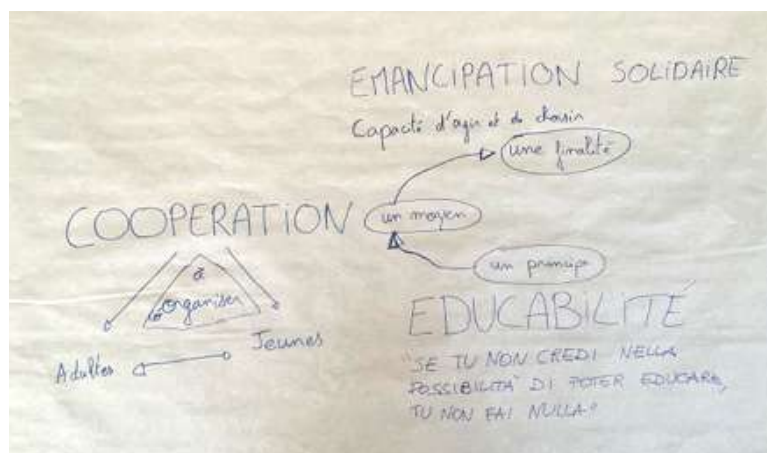 EMANCIPATION SOLIDAIRE
Capacité d'agir et de choisir
une finalité
COOPERATION un moyen
un principe
à
organiser
Adultes
Jeunes
EDUCABILITÉ
"SE TU NON CREDI NELLA
POSSIBILITA' DI POTER EDUCARE,
TU NON FAI NULLA"